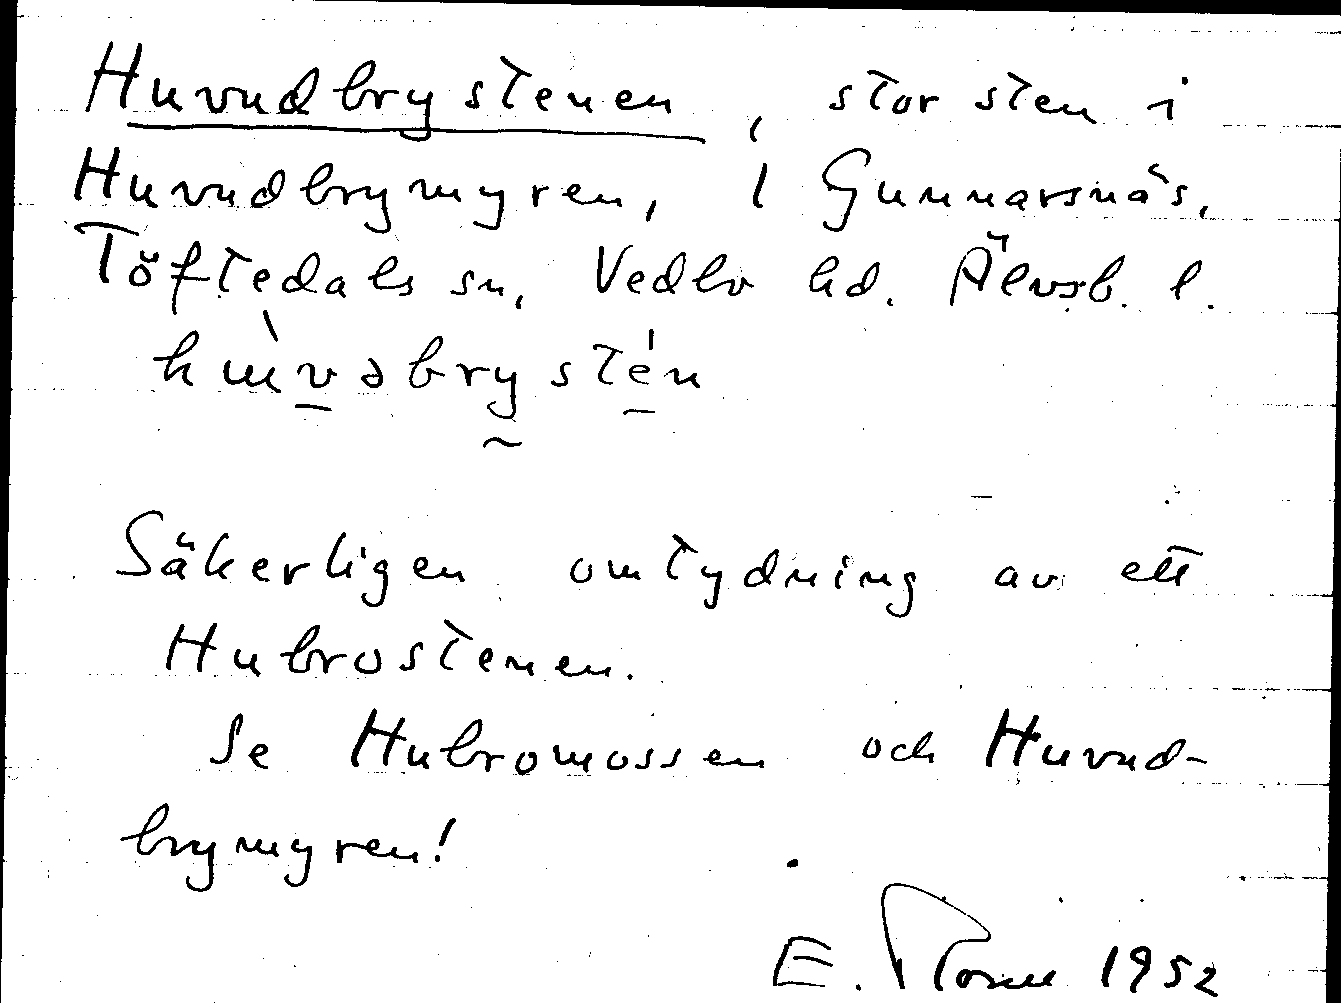 Huvudbrystenen, stor sten i
Huvudbrymyren, i Gunnarsnäs,
Töftedals sn, Vedbo hd. Älvsb. l.
hùvəbrystén
Säkerligen omtydning av ett
Hubrostenen.
Se Hubromossen och Huvud-
brymyren!
E. 1952